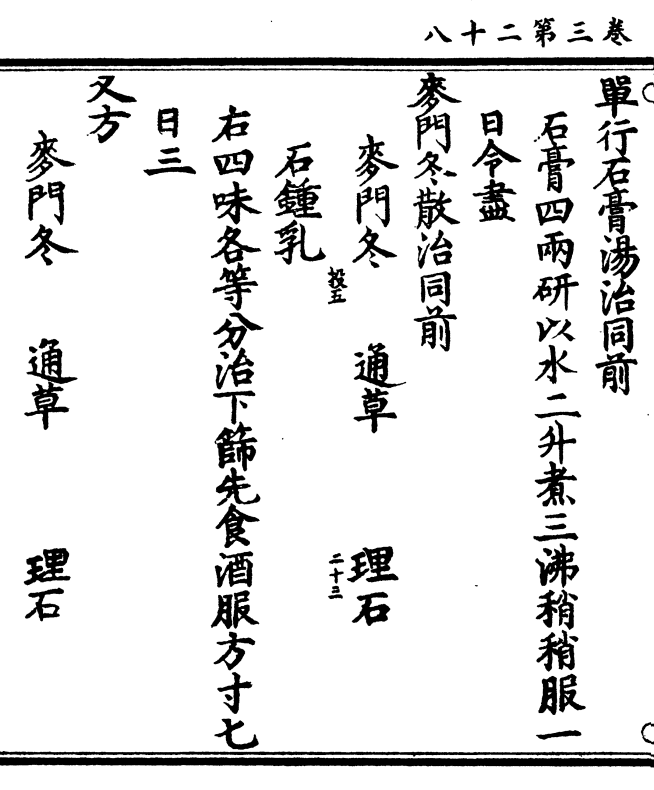 卷三第二十八
單行石膏湯治同前
石膏四兩研以水二升煮三沸稍稍服一
日令盡
麥門冬散治同前
麥門冬　通草　理石
投五　二十三
石鍾乳
右四味各等分治下篩先食酒服方寸七
日三
又方
麥門冬　通草　理石